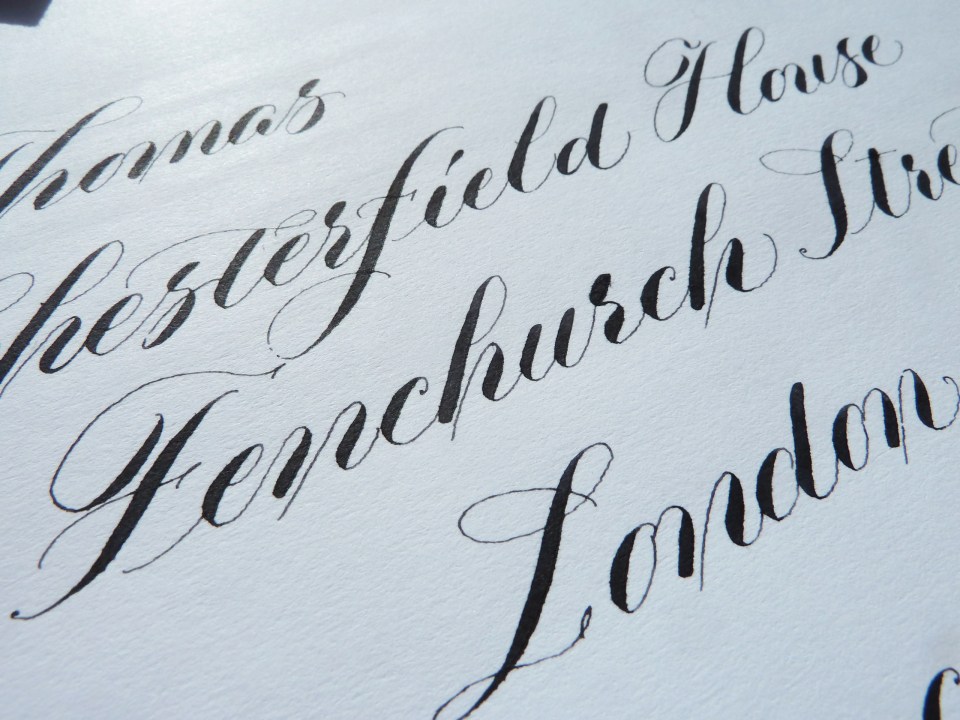 Thomas
Chesterfield House
Fenchurch Stre
London